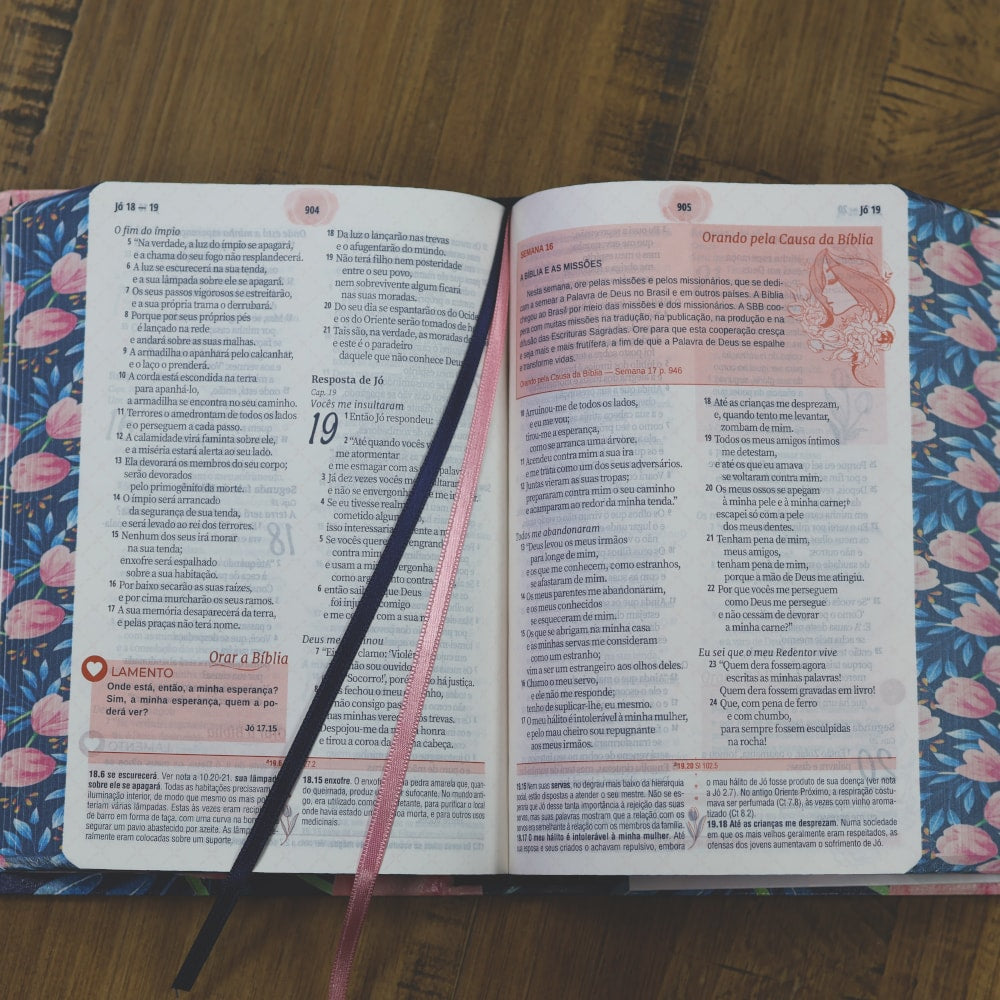 Jó 18 — 19
904
O fim do ímpio
5 “Na verdade, a luz do ímpio se apagará,
e a chama do seu fogo não resplandecerá.
6 A luz se escurecerá na sua tenda,
e a sua lâmpada sobre ele se apagará.
7 Os seus passos vigorosos se estreitarão,
e a sua própria trama o derrubará.
8 Porque por seus próprios pés
é lançado na rede
e andará sobre as suas malhas.
9 A armadilha o apanhará pelo calcanhar,
e o laço o prenderá.
10 A corda está escondida na terra
para apanhá-lo,
a armadilha se encontra no seu caminho.
11 Terrores o amedrontam de todos os lados
e o perseguem a cada passo.
12 A calamidade virá faminta sobre ele,
e a miséria estará alerta ao seu lado.
13 Ela devorará os membros do seu corpo;
serão devorados
pelo primogênito da morte.
14 O ímpio será arrancado
da segurança de sua tenda,
e será levado ao rei dos terrores.
15 Nenhum dos seus irá morar
na sua tenda;
enxofre será espalhado
sobre a sua habitação.
16 Por baixo secarão as suas raízes,
e por cima murcharão os seus ramos.
17 A sua memória desaparecerá da terra,
e pelas praças não terá nome.
Orar a Bíblia
LAMENTO
Onde está, então, a minha esperança?
Sim, a minha esperança, quem a po-
derá ver?
Jó 17.15
18 Da luz o lançarão nas trevas
e o afugentarão do mundo.
19 Não terá filho nem posteridade
entre o seu povo,
nem sobrevivente algum ficará
nas suas moradas.
20 Do seu dia se espantarão os do
e os do Oriente serão tomados de
21 Tais são, na verdade, as moradas
e este é o paradeiro
daquele que não conhece Deus
Resposta de Jó
Cap. 19
Vocês me insultaram
19 1 Então Jó respondeu:
2 “Até quando vocês
me atormentar
e me esmagar com as
3 Já dez vezes vocês me
e não se envergonham
4 Se eu tivesse realmente
cometido algum
isso interessaria
5 Se vocês querem
contra mim
e usam a minha vergonha
como argumento contra
6 então saibam que Deus
foi injusto comigo
e me
Deus me
7 “Eis que clamo:
não sou ouvido;
‘Socorro!’, porém não há justiça.
8 fechou o meu caminho,
não consigo passar;
nas minhas veredas trevas.
Despojou-me da minha honra
e tirou a coroa da minha cabeça.
18.6 se escurecerá. Ver nota a 10.20-21. sua lâmpada
sobre ele se apagará. Todas as habitações precisavam
iluminação interior, de modo que mesmo os mais
teriam várias lâmpadas. Estas às vezes eram
de barro em forma de taça, com uma curva na
segurar um pavio abastecido por azeite. As lâmpadas
ralmente eram colocadas sobre um suporte.
18.15 enxofre. O enxofre, pedra amarela que, quan-
do queimada, produz sufocante. No mundo anti-
go, era utilizado como desinfetante, para purificar o local
onde havia estado uma pessoa morta, e para outros usos
medicinais.
905
Jó 19
SEMANA 16
Orando pela Causa da Bíblia
A BÍBLIA E AS MISSÕES
Nesta semana, ore pelas missões e pelos missionários, que se dedi-
cam a semear a Palavra de Deus no Brasil e em outros países. A Bíblia
chegou ao Brasil por meio das missões e dos missionários. A SBB coo-
pera com muitas missões na tradução, na publicação, na produção e na
difusão das Escrituras Sagradas. Ore para que esta cooperação cresça
e seja mais e mais frutífera, a fim de que a Palavra de Deus se espalhe
e transforme vidas.
Orando pela Causa da Bíblia — Semana 17 p. 946
10 Arruinou-me de todos os lados,
e eu me vou;
tirou-me a esperança,
como se arranca uma árvore.
11 Acendeu contra mim a sua ira
e me trata como um dos seus adversários.
12 Juntas vieram as suas tropas;
prepararam contra mim o seu caminho
e acamparam ao redor da minha tenda.”
Todos me abandonaram
13 “Deus levou os meus irmãos
para longe de mim,
e os que me conhecem, como estranhos,
se afastaram de mim.
14 Os meus parentes me abandonaram,
e os meus conhecidos
se esqueceram de mim.
15 Os que se abrigam na minha casa
e as minhas servas me consideram
como um estranho;
vim a ser um estrangeiro aos olhos deles.
16 Chamo o meu servo,
e ele não me responde;
tenho de suplicar-lhe, eu mesmo.
17 O meu hálito é intolerável à minha mulher,
e pelo mau cheiro sou repugnante
aos meus irmãos.
18 Até as crianças me desprezam,
e, quando tento me levantar,
zombam de mim.
19 Todos os meus amigos íntimos
me detestam,
e até os que eu amava
se voltaram contra mim.
20 Os meus ossos se apegam
à minha pele e à minha carne;
escapei só com a pele
dos meus dentes.
21 Tenham pena de mim,
meus amigos,
tenham pena de mim,
porque a mão de Deus me atingiu.
22 Por que vocês me perseguem
como Deus me persegue
e não cessam de devorar
a minha carne?”
Eu sei que o meu Redentor vive
23 “Quem dera fossem agora
escritas as minhas palavras!
Quem dera fossem gravadas em livro!
24 Que, com pena de ferro
e com chumbo,
para sempre fossem esculpidas
na rocha!
19.20 Sl 102.5
19.15 Nem suas servas, no degrau mais baixo da hierarquia
social, estão dispostas a atender o seu mestre. Não se es-
peraria que Jó desse tanta importância à rejeição das suas
servas, mas suas palavras mostram que a relação com os
servos era semelhante à relação com os membros da família.
19.17 O meu hálito é intolerável à minha mulher. Até
sua esposa e seus criados o achavam repulsivo, embora
o mau hálito de Jó fosse produto de sua doença (ver nota
a Jó 2.7). No antigo Oriente Próximo, a respiração costu-
mava ser perfumada (Ct 7.8), às vezes com vinho aroma-
tizado (Ct 8.2).
19.18 Até as crianças me desprezam. Numa sociedade
em que os mais velhos geralmente eram respeitados, as
ofensas dos jovens aumentavam o sofrimento de Jó.